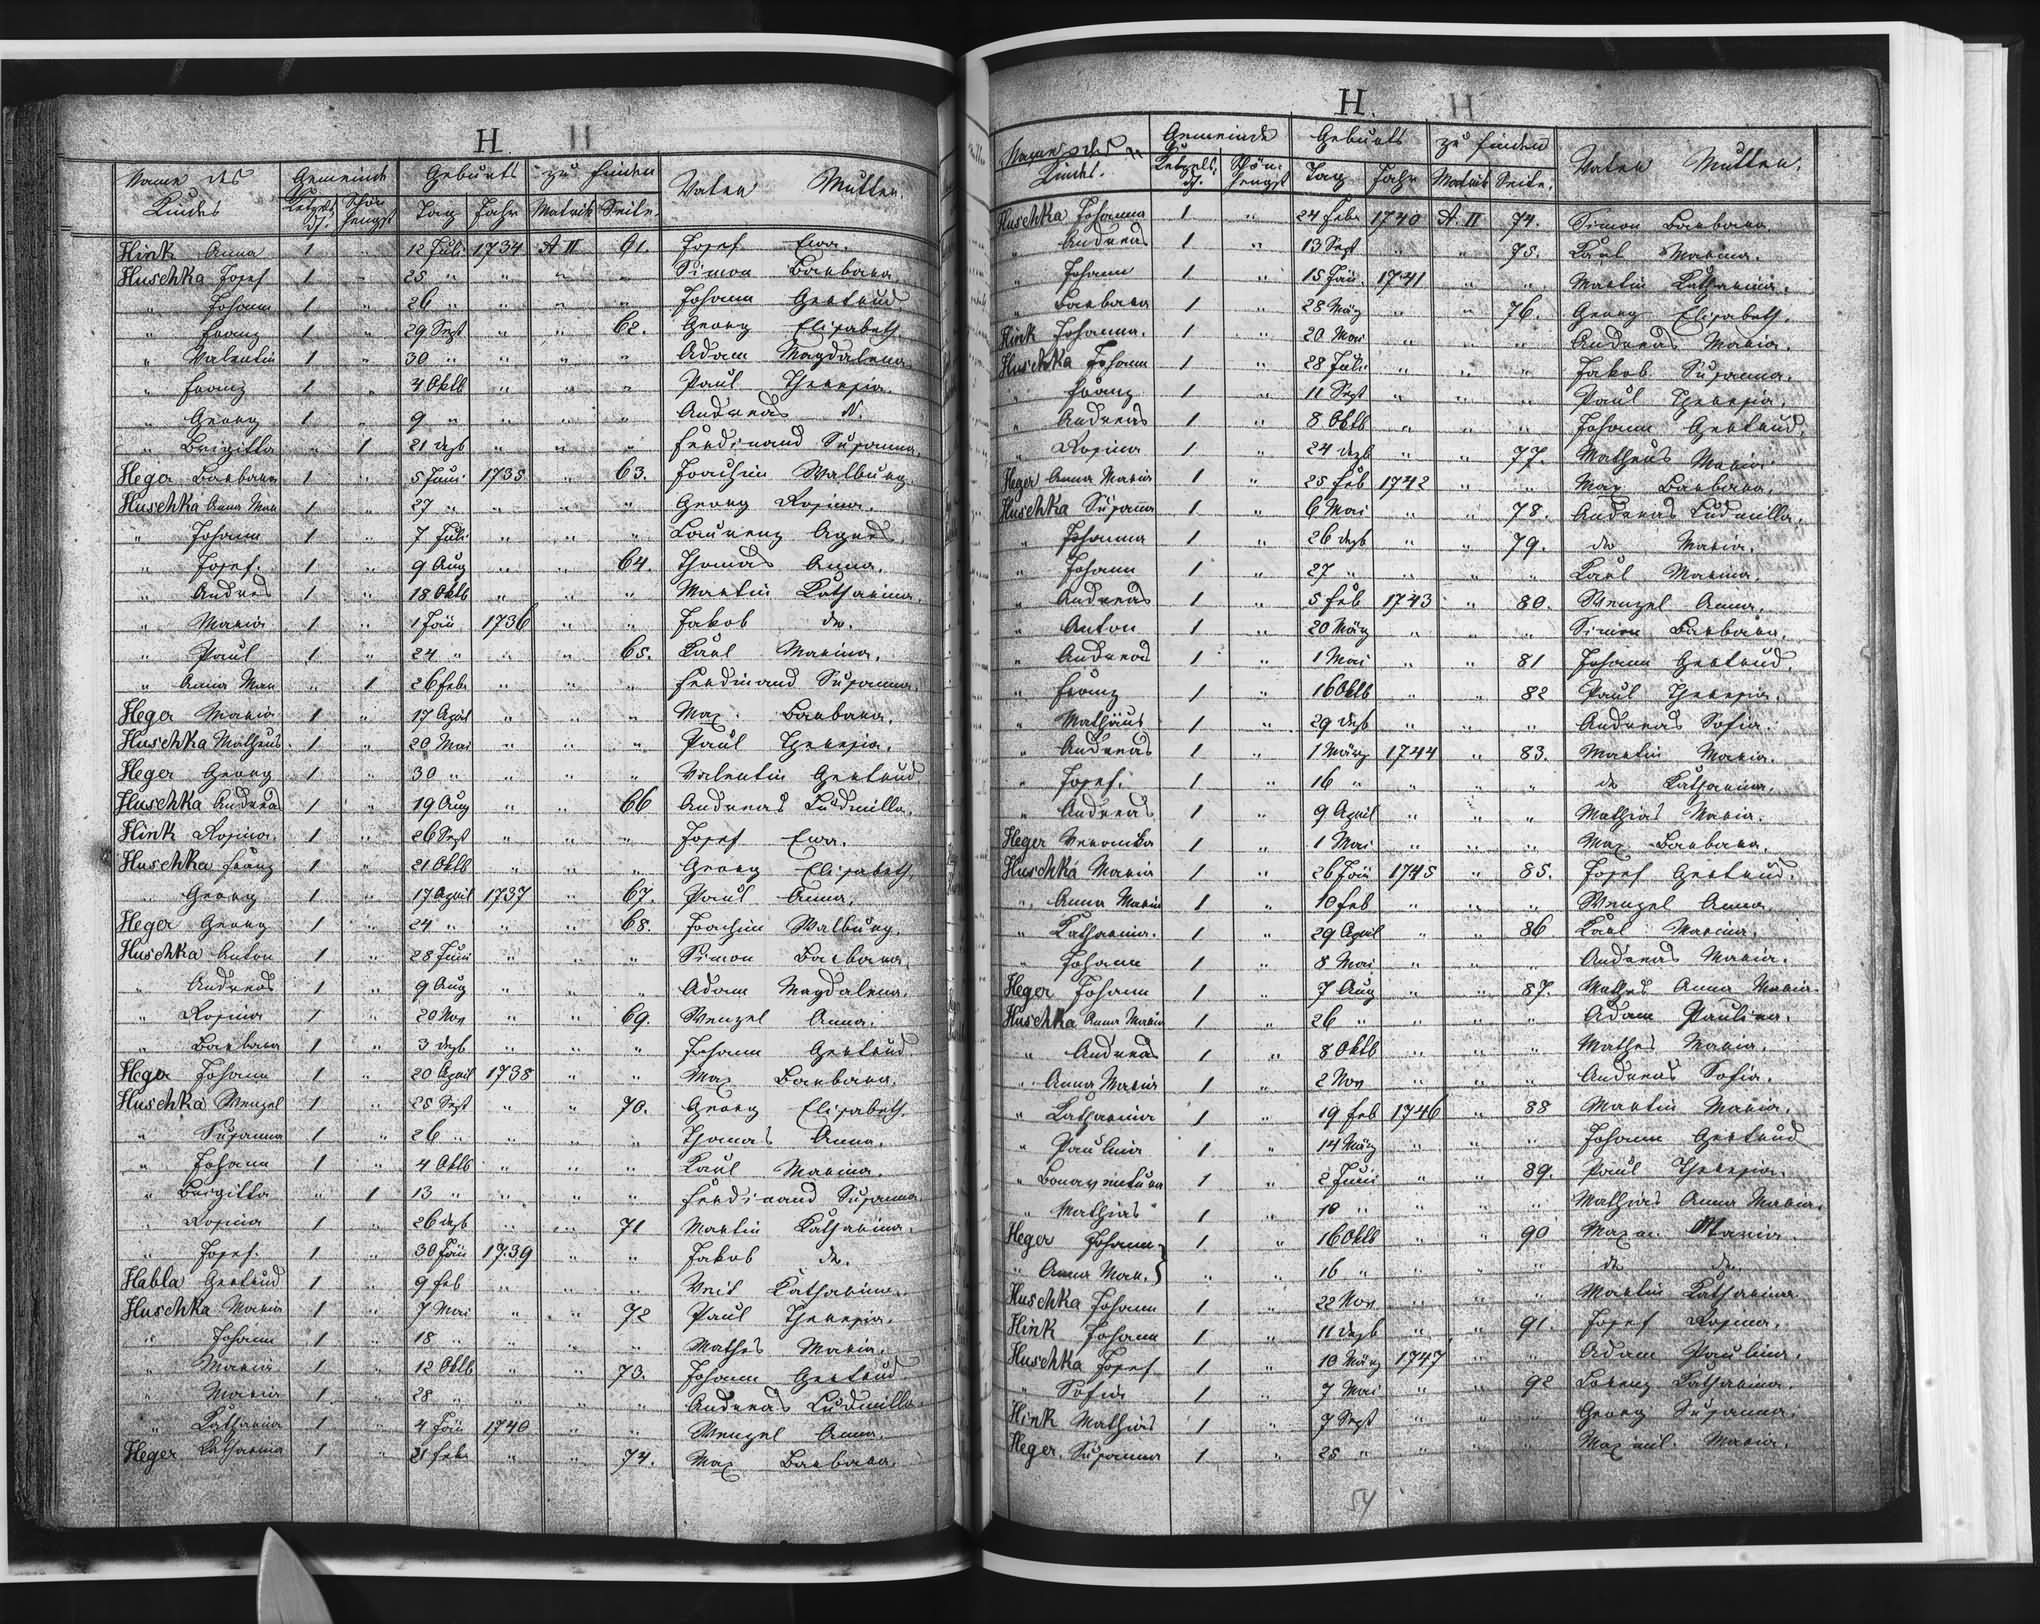 H.
Name des Kindes Gemeinde Ketzelsdf. Schönhengst Geburts Tag Jahr zu finden Matrik Seite Vater Mutter.
Hink Anna 1 " 12 Juli 1734 A II 61. Josef Ewa.
Huschka Josef 1 " 25 " " " " Simon Barbara.
" Johann 1 " 26 " " " " Johann Gertrud
" Franz 1 " 29 Sept " " 62. Georg Elisabeth.
" Valentin 1 " 30 " " " " Adam Magdalena.
" Franz 1 " 4 Oktb " " " Paul Theresia.
" Georg 1 " 9 " " " " Andreas N.
" Brigitta " 1 21 dezb " " " Ferdinand Susanna.
Heger Barbara 1 " 5 Juni 1735 " 63. Joachim Walburg.
Huschka Anna Mar 1 " 27 " " " " Georg Rosina.
" Johann 1 " 7 Juli " " " Laurenz Agnes.
" Josef. 1 " 9 Aug " " 64. Thomas Anna.
" Andreas 1 " 18 Oktb " " " Martin Katharina.
" Maria 1 " 1 Jän 1736 " " Jakob do.
" Paul 1 " 24 " " " 65. Karl Marina.
" Anna Mar " 1 26 Febr " " " Ferdinand Susanna.
Heger Maria 1 " 17 April " " " Max. Barbara.
Huschka Matheus. 1 " 20 Mai " " " Paul Theresia.
Heger Georg 1 " 30 " " " " Valentin Gertrud
Huschka Andreas 1 " 19 Aug " " 66 Andreas Ludmilla.
Hink Rosina. 1 " 26 Sept " " " Josef Ewa.
Huschka Franz 1 " 21 Oktb " " " Georg Elisabeth.
" Georg 1 " 17 April 1737 " 67. Paul Anna.
Heger Georg 1 " 24 " " " 68. Joachim Walburg.
Huschka Anton 1 " 28 Juni " " " Simon Barbara.
" Andreas 1 " 9 Aug " " " Adam Magdalena.
" Rosina 1 " 20 Nov " " 69. Wenzel Anna.
" Barbara 1 " 3 dezb " " " Johann Gertrud
Heger Johann 1 " 20 April 1738 " " Max Barbara.
Huschka Wenzel 1 " 25 Sept " " 70. Georg Elisabeth.
" Susanna 1 " 26 " " " " Thomas Anna.
" Johann 1 " 4 Oktb " " " Karl Marina.
" Brigitta " 1 13 " " " " Ferdinand Susanna.
" Rosina 1 " 26 dezb " " 71 Martin Katharina.
" Josef. 1 " 30 Jän 1739 " " Jakob do.
Habla Gertrud 1 " 9 Feb " " " Veit Katharina.
Huschka Maria 1 " 7 Mai " " 72 Paul Theresia.
" Johann 1 " 18 " " " " Mathes Maria.
" Maria 1 " 12 Oktb " " 73. Johann Gertrud
" Maria 1 " 28 " " " " Andreas Ludmilla.
" Katharina 1 " 4 Jän 1740 " " Wenzel Anna.
Heger Katharina 1 " 21 Febr " " 74. Max Barbara.
H.
Name des Kindes. Gemeinde Ketzelsdf. Schönhengst Geburts Tag Jahr zu finden Matrik Seite. Vater Mutter.
Huschka Johanna 1 " 24 Febr 1740 A. II 74. Simon Barbara
" Andreas 1 " 13 Sept " " 75. Karl Marina.
" Johann 1 " 15 Jän. 1741 " " Martin Katharina.
" Barbara 1 " 28 März " " 76. Georg Elisabeth.
Hink Johanna. 1 " 20 Mai " " " Andreas Maria.
Huschka Johann 1 " 28 Juli " " " Jakob Susanna.
" Franz 1 " 11 Sept " " " Paul Theresia.
" Andreas 1 " 8 Oktb " " " Johann Gertrud.
" Rosina 1 " 24 dezb " " 77. Matheus Maria
Heger Anna Maria 1 " 25 Feb 1742 " " Max Barbara.
Huschka Susanna 1 " 6 Mai " " 78. Andreas Ludmilla.
" Johanna 1 " 26 dezb " " 79. do Maria.
" Johann 1 " 27 " " " " Karl Marina.
" Andreas 1 " 5 Feb 1743 " 80. Wenzel Anna.
" Anton 1 " 20 März " " " Simon Barbara.
" Andreas 1 " 1 Mai " " 81 Johann Gertrud.
" Franz 1 " 16 Oktb " " 82 Paul Theresia.
" Mathäus 1 " 29 dezb " " " Andreas Sofia.
" Andreas 1 " 1 März 1744 " 83. Martin Maria.
" Josef. 1 " 16 " " " " do Katharina.
" Andreas 1 " 9 April " " " Mathias Maria.
Heger Veronika 1 " 1 Mai " " " Max Barbara.
Huschka Maria 1 " 26 Jän 1745 " 85. Josef Gertrud.
" Anna Maria 1 " 10 Feb " " " Wenzel Anna.
" Katharina. 1 " 29 April " " 86 Karl Marina.
" Johann 1 " 8 Mai " " " Andreas Maria.
Heger Johann 1 " 7 Aug " " 87. Mathes Anna Maria.
Huschka Anna Maria 1 " 26 " " " " Adam Paulina.
" Andreas 1 " 8 Oktb " " " Mathes Maria.
" Anna Maria 1 " 2 Nov " " " Andreas Sofia.
" Katharina 1 " 19 Feb 1746 " 88 Martin Maria.
" Paulina 1 " 14 März " " " Johann Gertrud
" Bonaventura 1 " 2 Juni " " 89. Paul Theresia.
" Mathias 1 " 10 " " " " Mathias Anna Maria.
Heger Johann } 1 " 16 Oktb " " 90 Maxm. Maria
" Anna Mar. } " " 16 " " " " do do.
Huschka Johann 1 " 22 Nov " " " Martin Katharina.
Hink Johann 1 " 11 dezb " " 91. Josef Rosina.
Huschka Josef 1 " 10 März 1747 " " Adam Paulina.
" Sofia 1 " 7 Mai " " 92 Lorenz Katharina.
Hink Mathias 1 " 7 Sept " " " Georg Susanna.
Heger. Susanna 1 " 25 " " " " Maxmil. Maria.
54